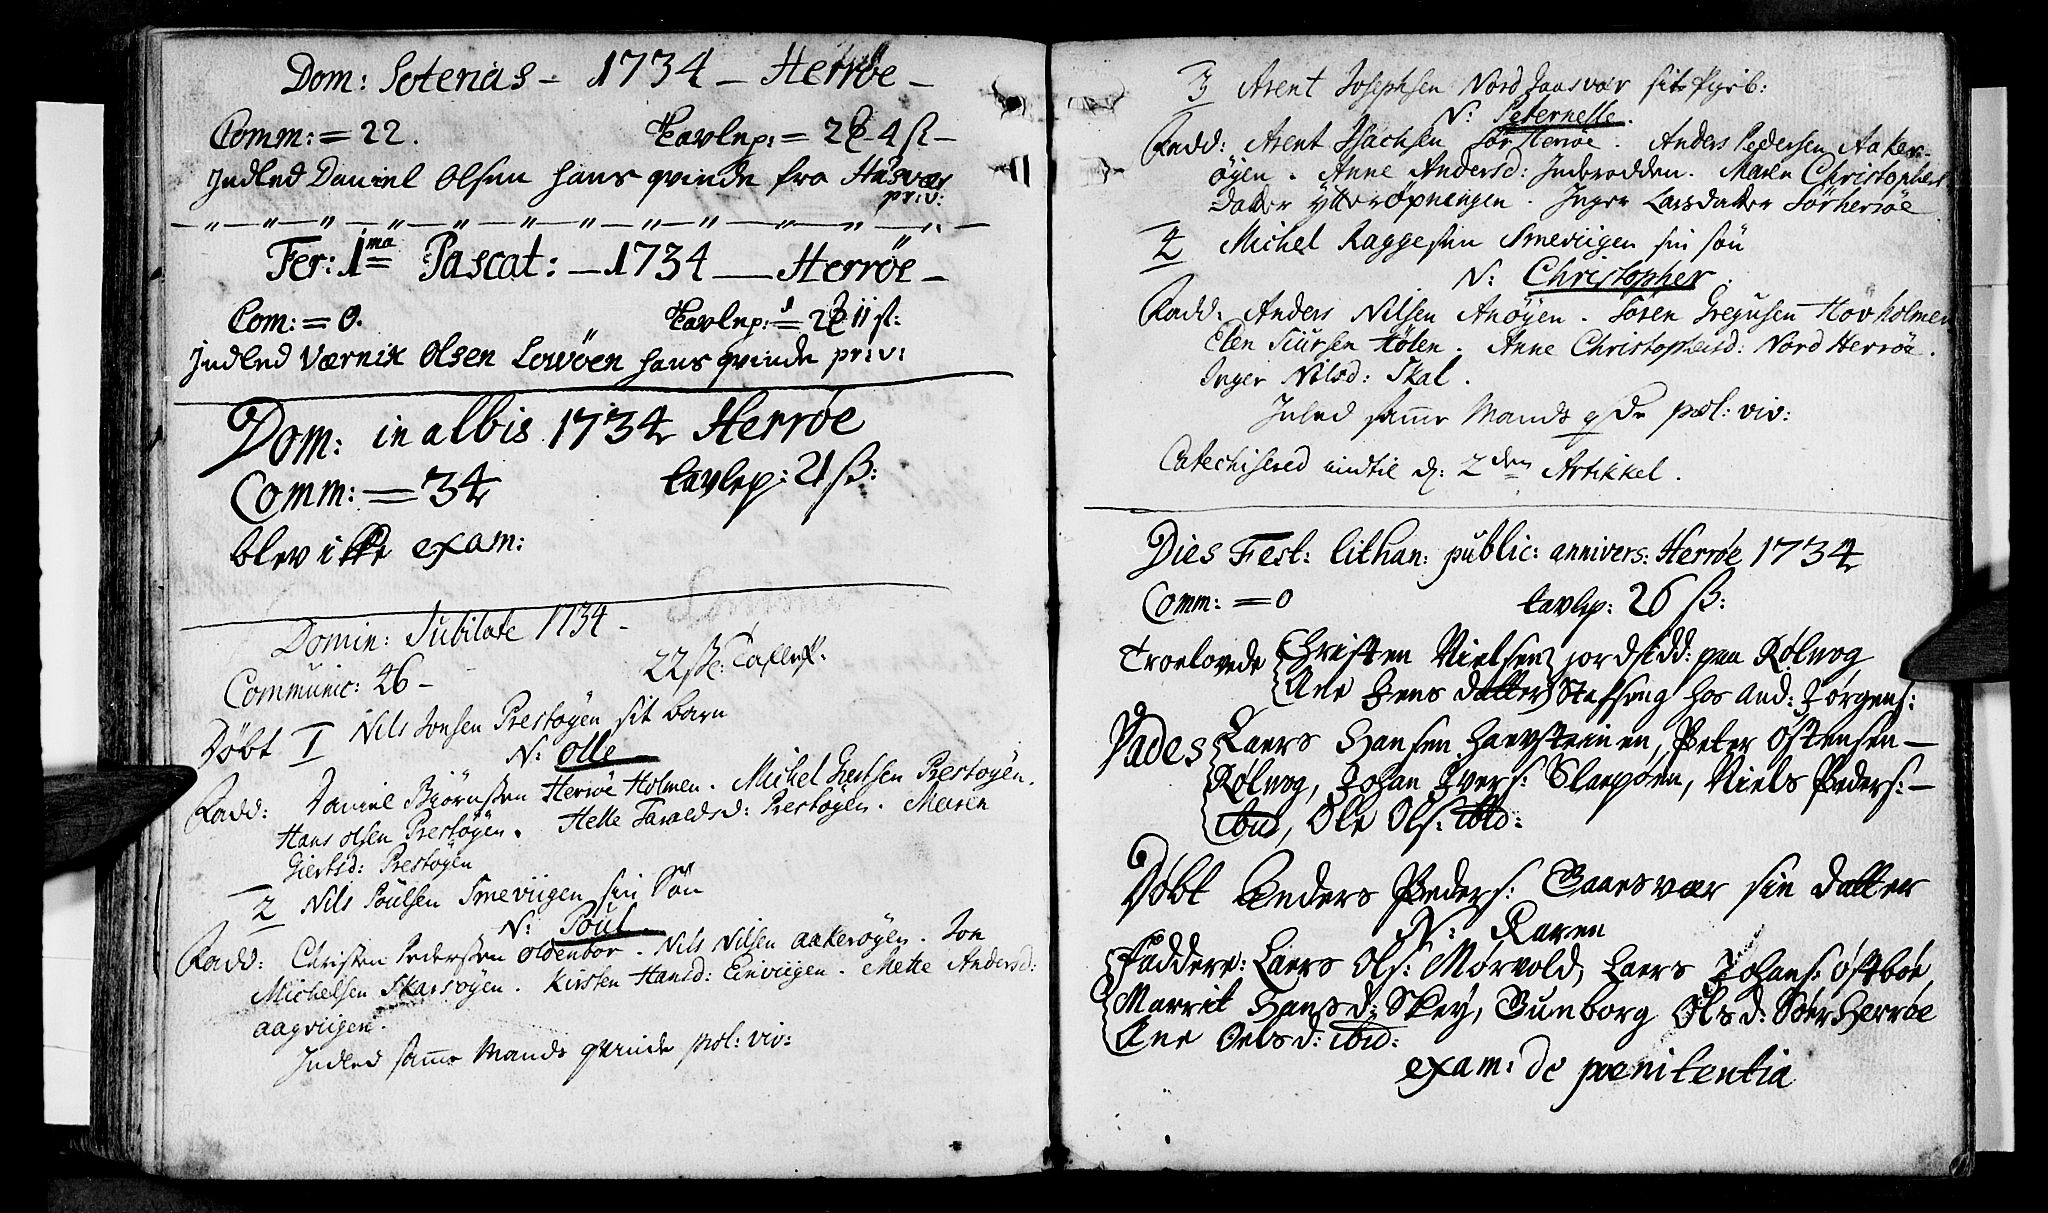 Dom: Soterias – 1734 – Herrøe –
Comm: = 22. Tavlep: = 2 4 ß –
Jndled Daniel Olsen hans qvinde fra Husvær
priv:
Fer: 1ma Pascat: – 1734 — Herrøe –
Com: = 0. Tavlep: = 2 11 ß:
Jndled Værnik Olsen Lovöen hans qvinde priv:
Dom: in albis 1734 Herrøe
Comm: = 34 tavlep: 21 ß:
blev ikke exam:
Domin: Jubilate 1734 –
Communic: 46 – 22 ß:
Döbt 1 Nils Jonsen Prestöyen sit barn
N: Olle
Fadd: Daniel Biörnssen Herröe Holmen. Michel Giertsen Prestöyen.
Hans Olsen Prestöyen. Helle Taraldsd: Prestöyen. Maren
Giertsd: Prestöyen
2 Nils Poulsen Smeviigen sin Sön
N: Poul
Fadd: Christen Pedersen Oldenbor. Nils Nilsen Aakeröyen. Jon
Michelsen Skarsöyen. Kirsten Hansd: Einviigen. Mette Andersd:
aagviigen.
Jndled samme Mands qvinde pol: viv:
3 Arent Josephsen Nord Gaasvær sit Pigeb:
N: Peternelle.
Fadd: Arent Isachsen Sör Herröe. Anders Pedersen Aaker-
öyen. Anne Andersd: Inderodden. Maren Christophers
Datter Ytteröpningen. Inger Larsdatter Sörherröe
4 Michel Raggesen Smeviigen sin sön
N: Christopher.
Fadd: Anders Nilsen Anöyen. Sören Gregusen Hovholmen
Elen Siursen Hölen. Anne Christophersd: Nord Herröe.
Inger Nilsd: Skal.
Jnled samme Mands qde pol: viv:
Catechisered indtil d: 2den Artikkel.
Dies Fest: lithan: public: annivers: Herrøe 1734
Comm: = 0 tavlep: 26 ß:
Troelovede Christen Nielsen jordsidd: paa Rølvog
Ane Jens datter Stafseng hos And: Jørgens:
Vades Laers Hansen Haevsteinen, Peter Ostensen –
Rølvog, Johan Ivers: Slaepøen, Niels Peders: –
ibid, Ole Ols: ibid:
Døbt Anders Peders: Gaasvær sin datter
N: Karen
Faddere: Laers Ols: Mørvold, Laers Johans: Østbøe
Marrit Hansd: Skey, Gunborg Olsd: Sør Herrøe
Ane Oelsd: ibid:
exam: de poenitentia